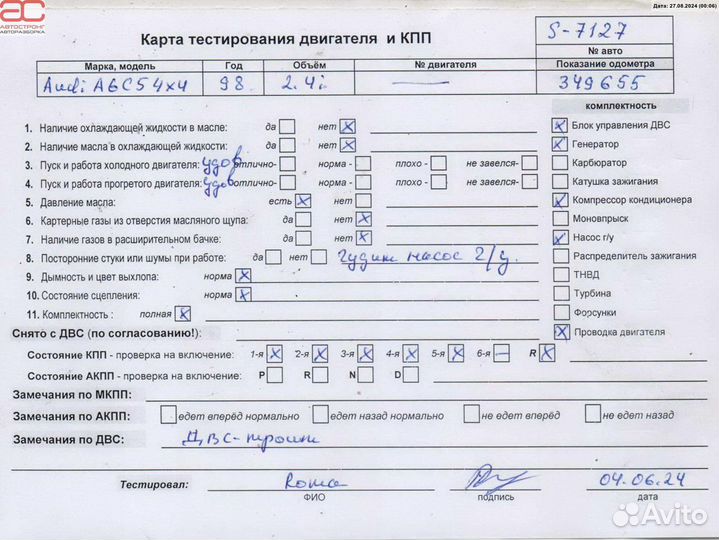 Дата: 27.08.2024 (00:06)
ac
АВТОСТРОНГ
АВТОРАЗБОРКА
Карта тестирования двигателя и КПП
S-7127
№ авто
Марка, модель Год Объём № двигателя Показание одометра
Audi A6C5 4x4 98 2.4i — 349655
комплектность
1. Наличие охлаждающей жидкости в масле: да нет X
Блок управления ДВС
2. Наличие масла в охлаждающей жидкости: да нет X
Генератор
3. Пуск и работа холодного двигателя: удов отлично- норма - плохо - не завелся-
Карбюратор
4. Пуск и работа прогретого двигателя: удов отлично- норма - плохо - не завелся-
Катушка зажигания
5. Давление масла: есть X нет
Компрессор кондиционера
6. Картерные газы из отверстия масляного щупа: да нет X
Моновпрыск
7. Наличие газов в расширительном бачке: да нет X
Насос г/у
8. Посторонние стуки или шумы при работе: да нет Гудит насос г/у.
Распределитель зажигания
9. Дымность и цвет выхлопа: норма X
ТНВД
10. Состояние сцепления: норма X
Турбина
11. Комплектность : полная X
Форсунки
Снято с ДВС (по согласованию!):
Проводка двигателя
Состояние КПП - проверка на включение: 1-я X 2-я X 3-я X 4-я X 5-я X 6-я — R X
Состояние АКПП - проверка на включение: P R N D
Замечания по МКПП:
Замечания по АКПП: едет вперёд нормально едет назад нормально не едет вперёд не едет назад
Замечания по ДВС: ДВС-троит
Тестировал: Roma 04.06.24
ФИО подпись дата
Avito